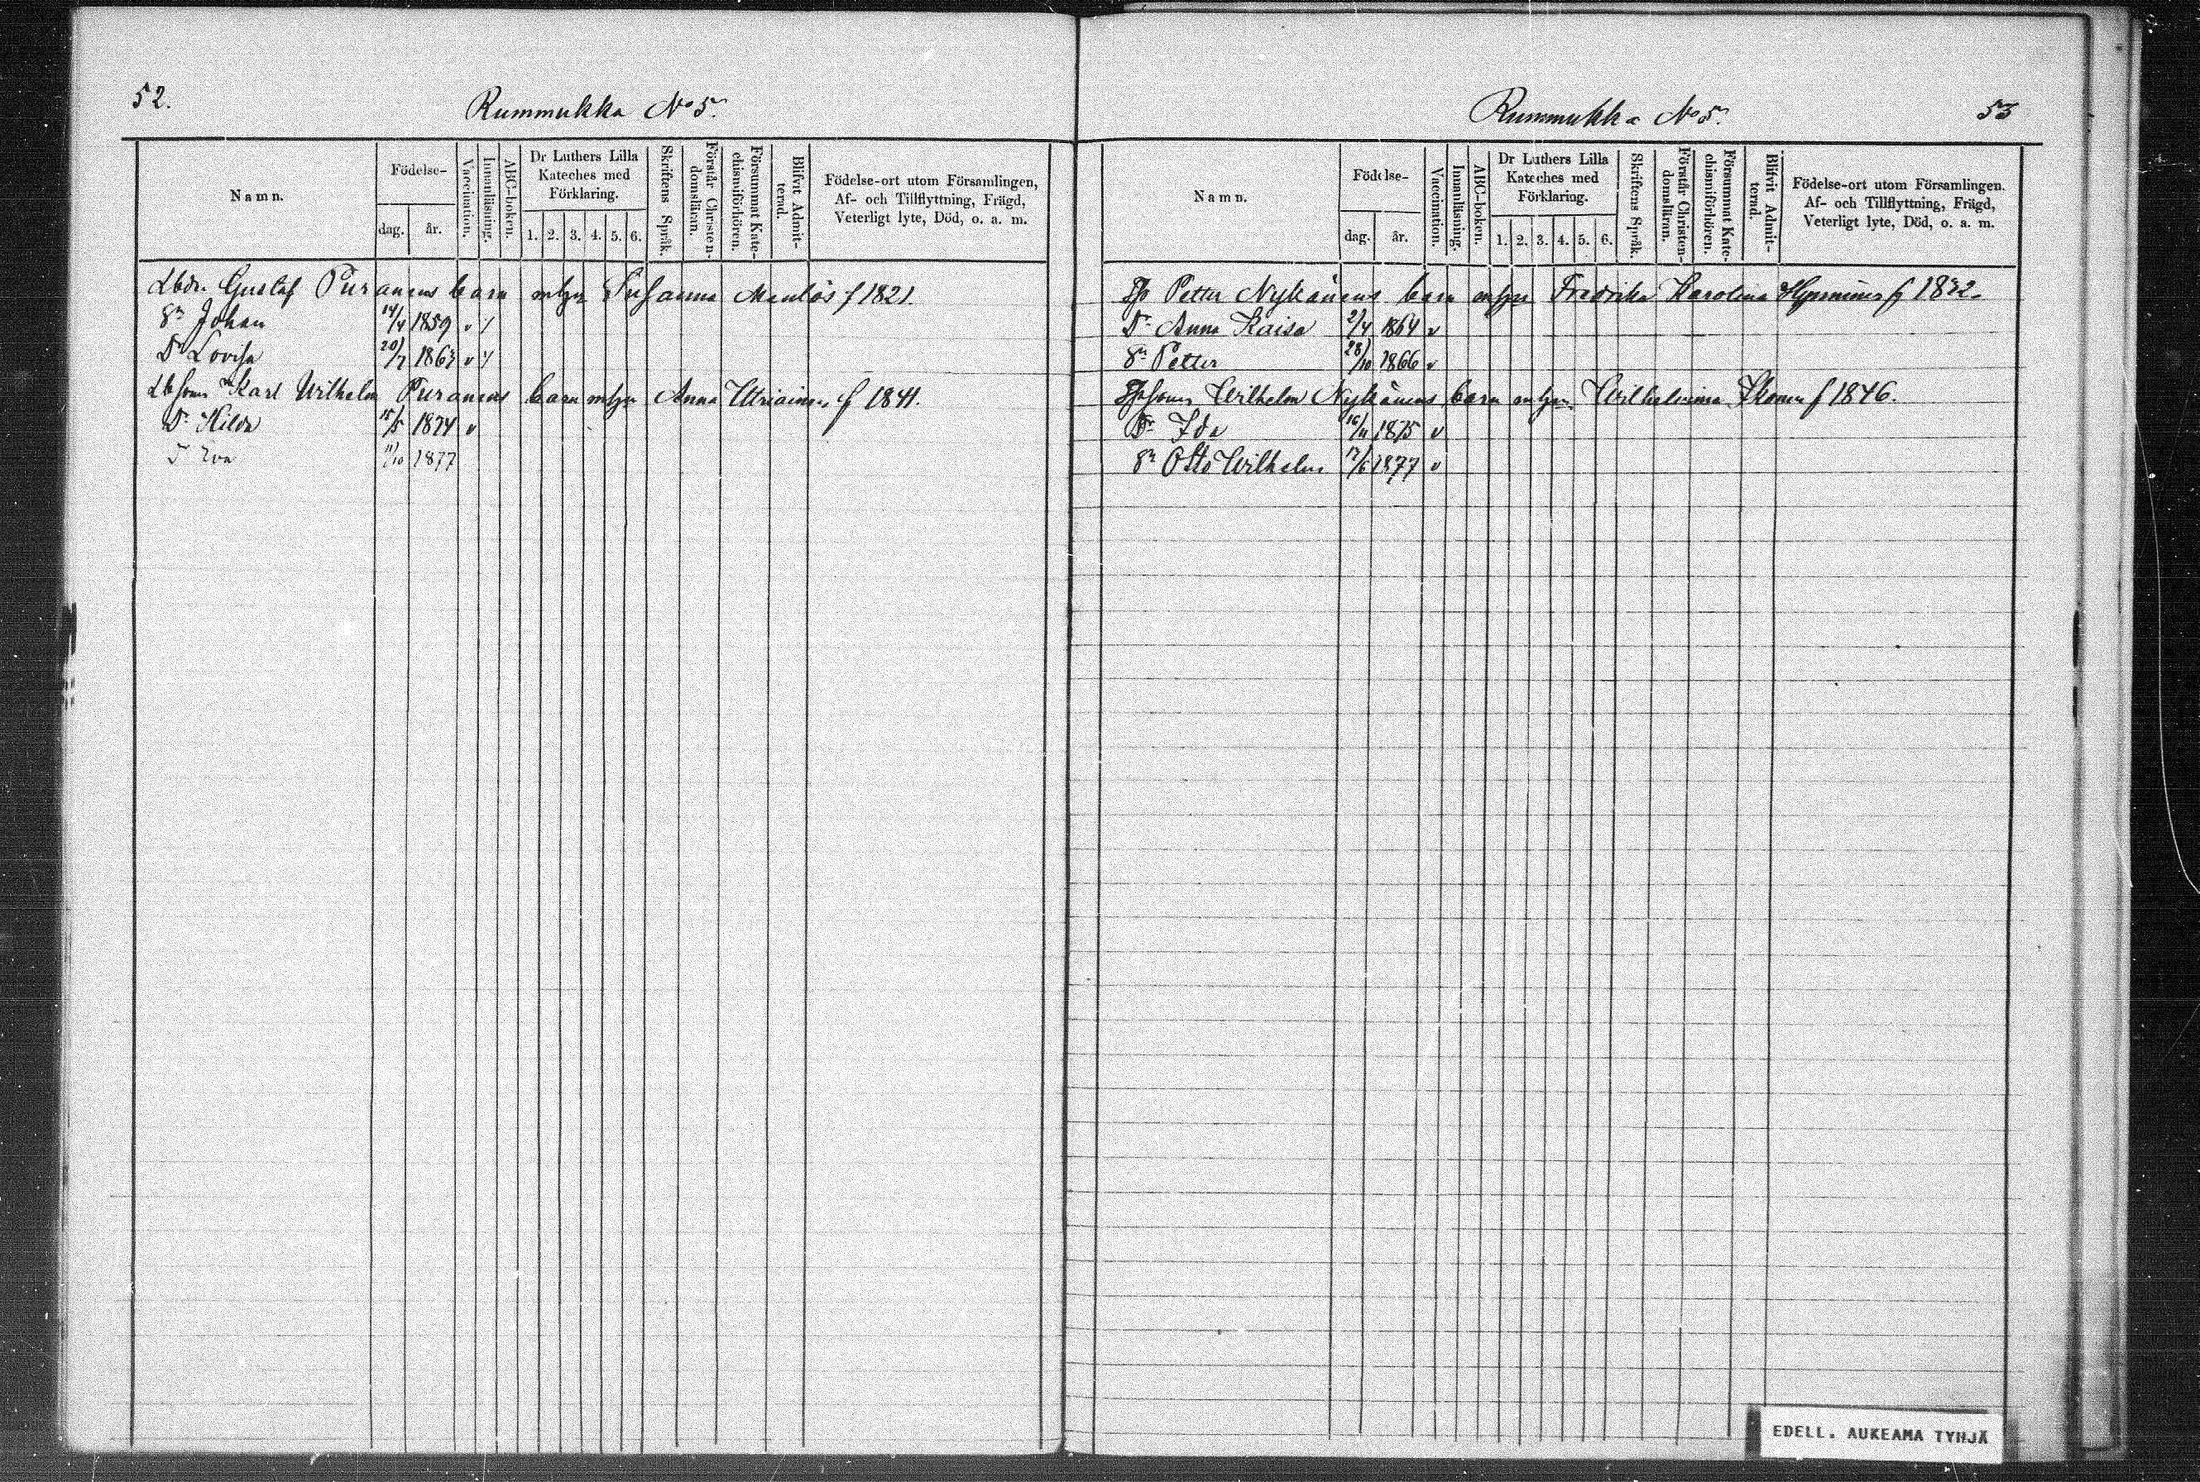 52.
Rummukka No 5.
Namn.
Födelse-
dag.
år.
Vaccination.
Innanläsning.
ABC-boken.
Dr Luthers Lilla
Kateches med
Förklaring.
1. 2. 3. 4. 5. 6.
Skriftens Språk.
Förstår Christen-
domsläran.
Försummat Kate-
chismiförhören.
Blifvit Admit-
terad.
Födelse-ort utom Församlingen,
Af- och Tillflyttning, Frägd,
Veterligt lyte, Död, o. a. m.
Gustaf Puranens barn Susanna f 1821.
Sn Johan 14/4 1859 v
Dr Lovisa 20/7 1863 v
Karl Wilhelm Puranens barn Anna f 1841.
Dr Hilda 15/5 1874 v
Eva 11/10 1877
Rummukka No 5.
53
Namn.
Födelse-
dag.
år.
Vaccination.
Innanläsning.
ABC-boken.
Dr Luthers Lilla
Kateches med
Förklaring.
1. 2. 3. 4. 5. 6.
Skriftens Språk.
Förstår Christen-
domsläran.
Försummat Kate-
chismiförhören.
Blifvit Admit-
terad.
Födelse-ort utom Församlingen.
Af- och Tillflyttning, Frägd,
Veterligt lyte, Död, o. a. m.
Petter Nykänens barn Fredrika Karolina f 1832.
Dr Anna Kaisa 2/4 1864 v
Sn Petter 28/10 1866 v
Wilhelm Nykänens barn Wilhelmina f 1846.
Dr Ida 16/11 1875 v
Sn Otto Wilhelm 17/6 1877 v
EDELL. AUKEAMA TYHJÄ